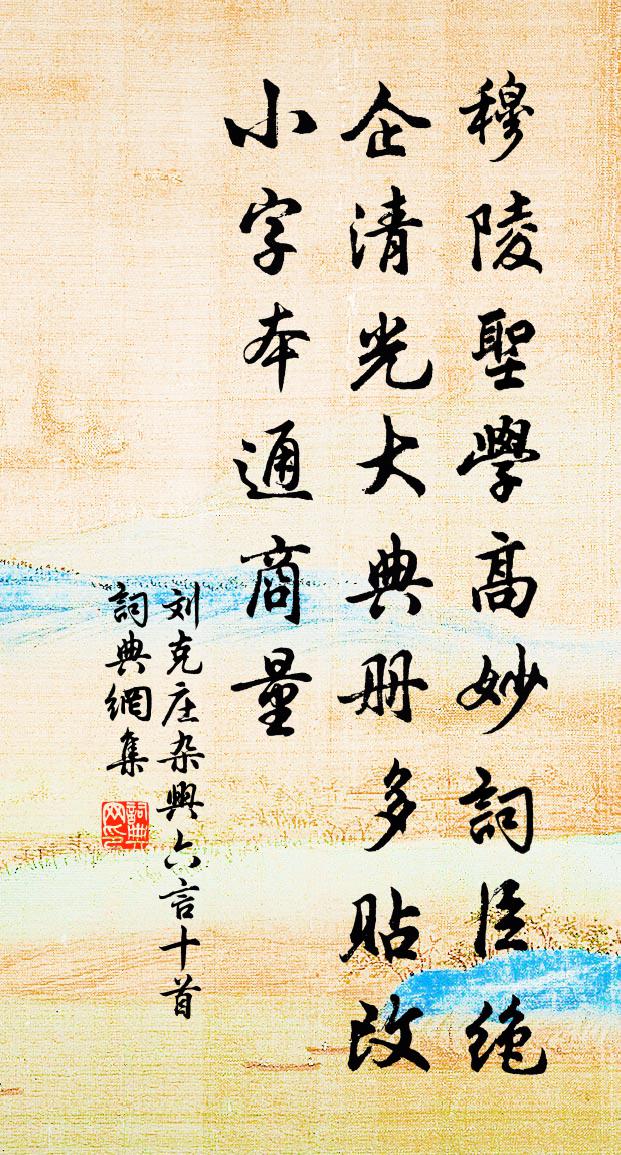 穆陵聖學高妙詞臣絶
企清光大典册多貼改
小字本通商量
刘克庄杂興六言十首
詞典網集
詞典網印